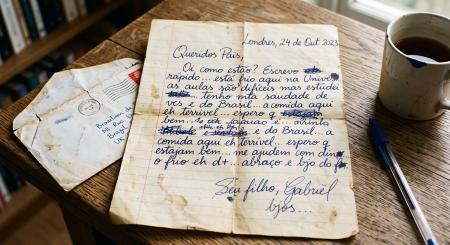 Londres, 24 de Out 2023
Queridos Pais,
Oi como estão? Escrevo
rápido... está frio aqui na Unive
as aulas são difíceis mas estudei
tenho mta saudade de
vcs e do Brasil... a comida aqui
eh terrível... espero q
bem...
e do Brasil... a
comida aqui eh terrível... espero q
estajam bem... me ajudem com din
o frio eh d+... abraço e bjo do
Seu filho, Gabriel
bjos...